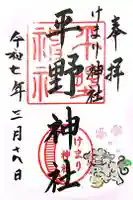 奉拝
けまり神社
平野神社
令和七年三月十八日
けまり
神社